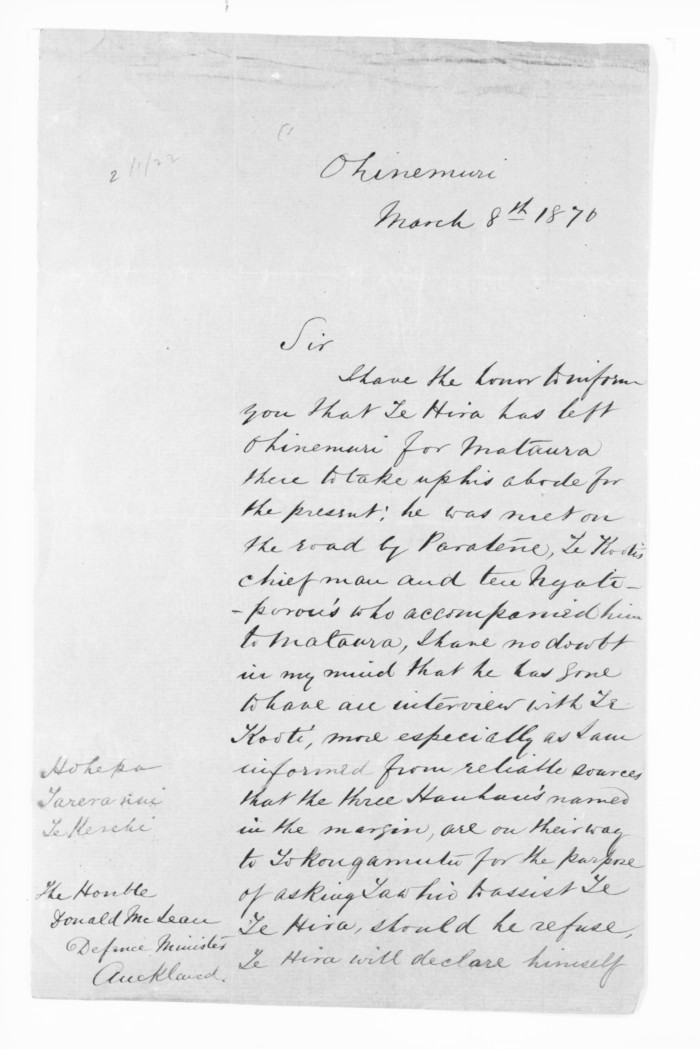 2/1/22
Ohinemuri
March 8th 1870
Sir
I have the honor to inform
you that Te Hira has left
Ohinemuri for Mataura
there to take up his abode for
the present; he was met on
the road by Paratene, Te Kooti's
chief man and ten Ngate-
-porou's who accompanied him
to Mataura, I have no doubt
in my mind that he has gone
to have an interview with Te
Kooti, more especially as I am
informed from reliable sources
that the three Hauhau's named
in the margin, are on their way
to Tokongamutu for the purpose
of asking Tawhio to assist Te
Te Hira, should he refuse,
Te Hira will declare himself
Hohepa
Tarera nui
Te
The Honble
Donald McLean
Defence Minister
Auckland.